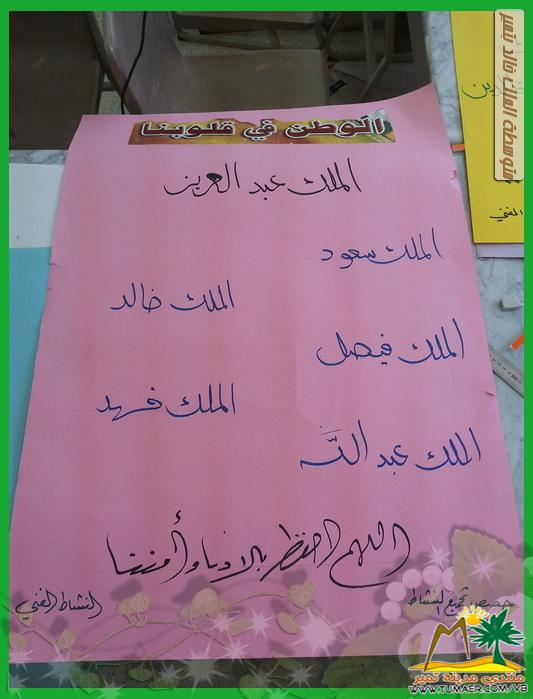 الوطن في قلوبنا
الملك عبد العزيز
الملك سعود
الملك خالد
الملك فيصل
الملك فهد
الملك عبد الله
اللهم احفظ بلادنا وأمننا
النشاط الفني
حصص تجميع النشاط
الفني
متوسطة الملك خالد بتمير
منتدى مدينة تمير
WWW.TUMAER.COM/VB